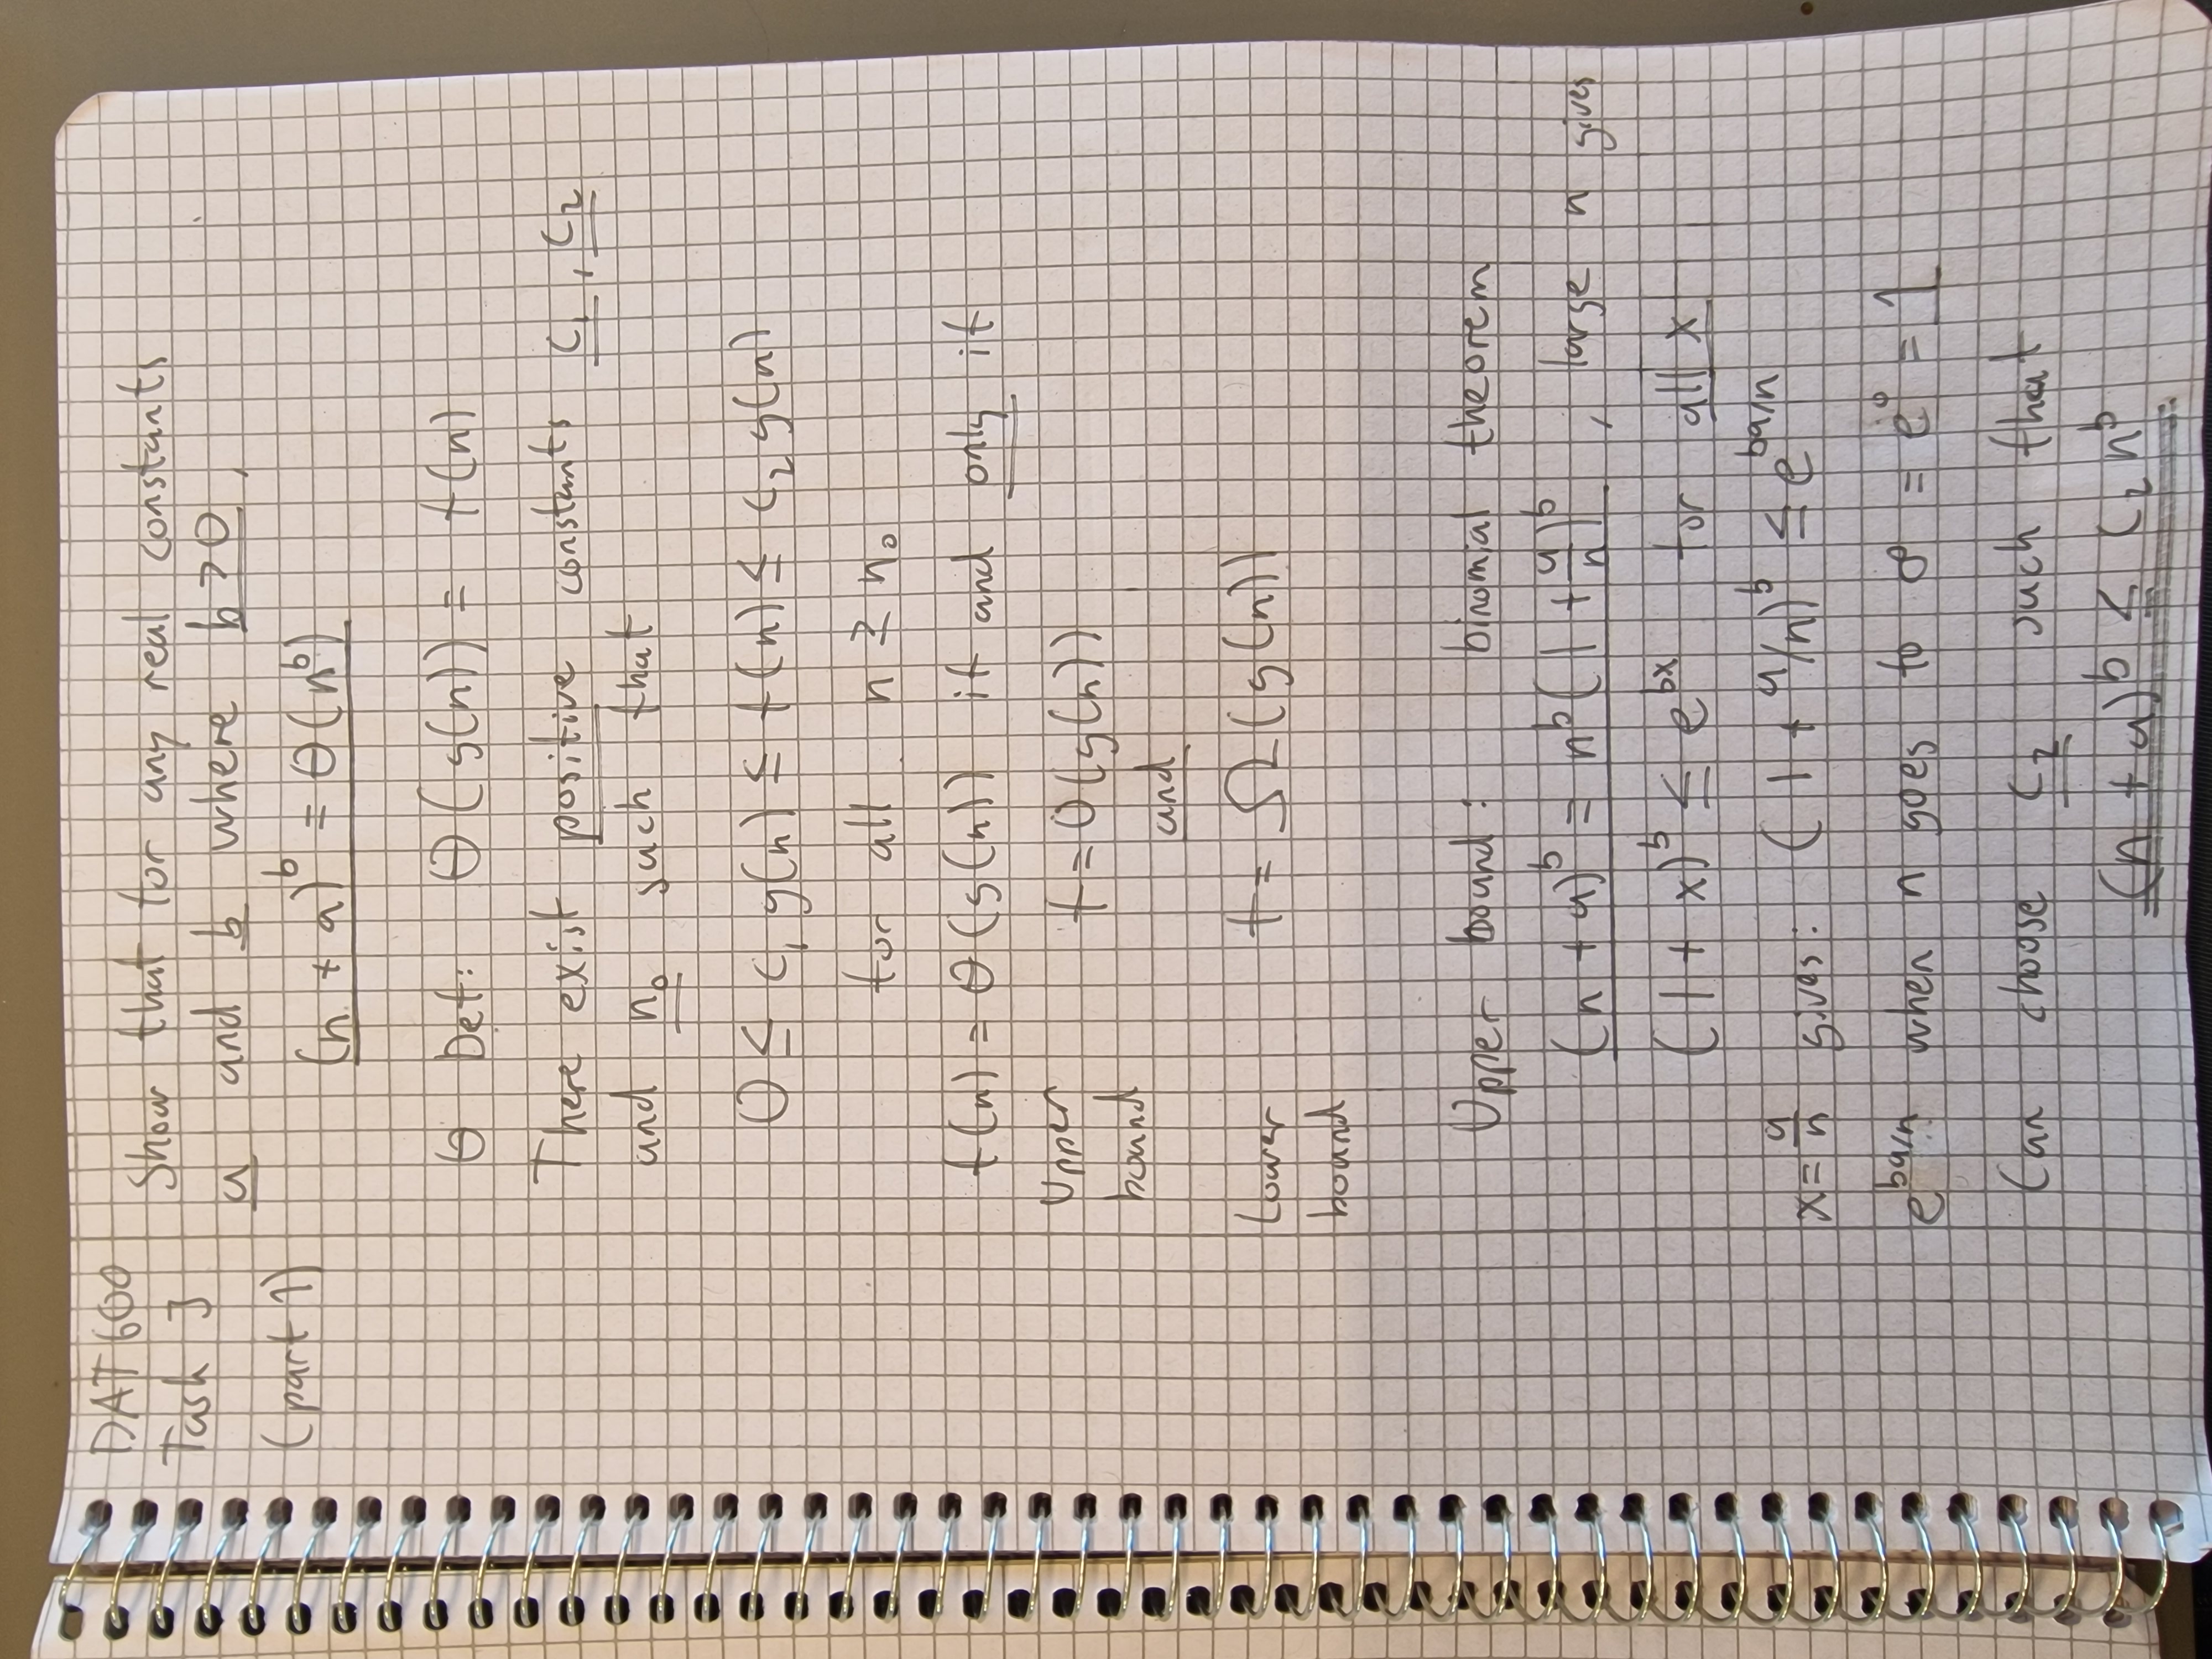 DAT600
Task 3
(part 1)
Show that for any real constants
a and b where b > 0,
(n + a)^b = Θ(n^b)
Θ Def: Θ(g(n)) = f(n)
There exist positive constants c₁, c₂
and n₀ such that
0 ≤ c₁ g(n) ≤ f(n) ≤ c₂ g(n)
for all n ≥ n₀
f(n) = Θ(g(n)) if and only if
Upper bound f = O(g(n))
and
Lower bound f = Ω(g(n))
Upper bound: binomial theorem
(n + a)^b = n^b (1 + a/n)^b , large n gives
(1 + x)^b ≤ e^bx for all x
x = a/n gives: (1 + a/n)^b ≤ e^ba/n
e^ba/n when n goes to ∞ = e^0 = 1
Can choose c₂ such that
(n + a)^b ≤ c₂ n^b